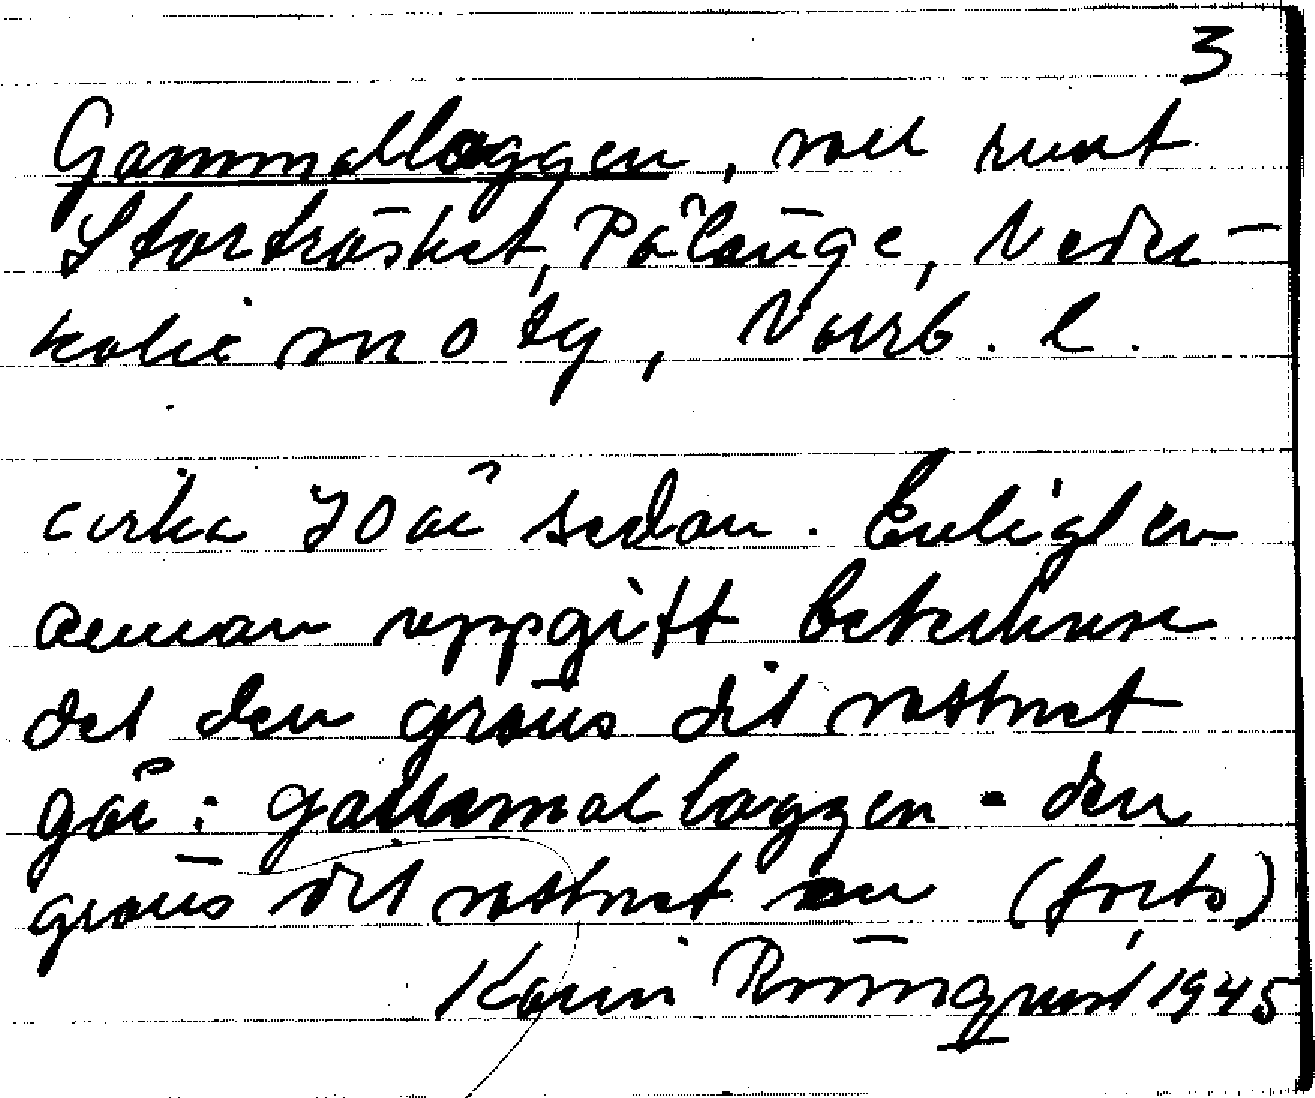 3
Gammallaggen, vall runt
Storträsket, Pålänge, Neder-
kalix mo tg, Norrb. l.
cirka 70 år sedan. Enligt en
annan uppgift betecknar
det den gräns dit vattnet
går: gammallaggen - den
gräns dit vattnet (forts)
Karin Rönnqvist 1945